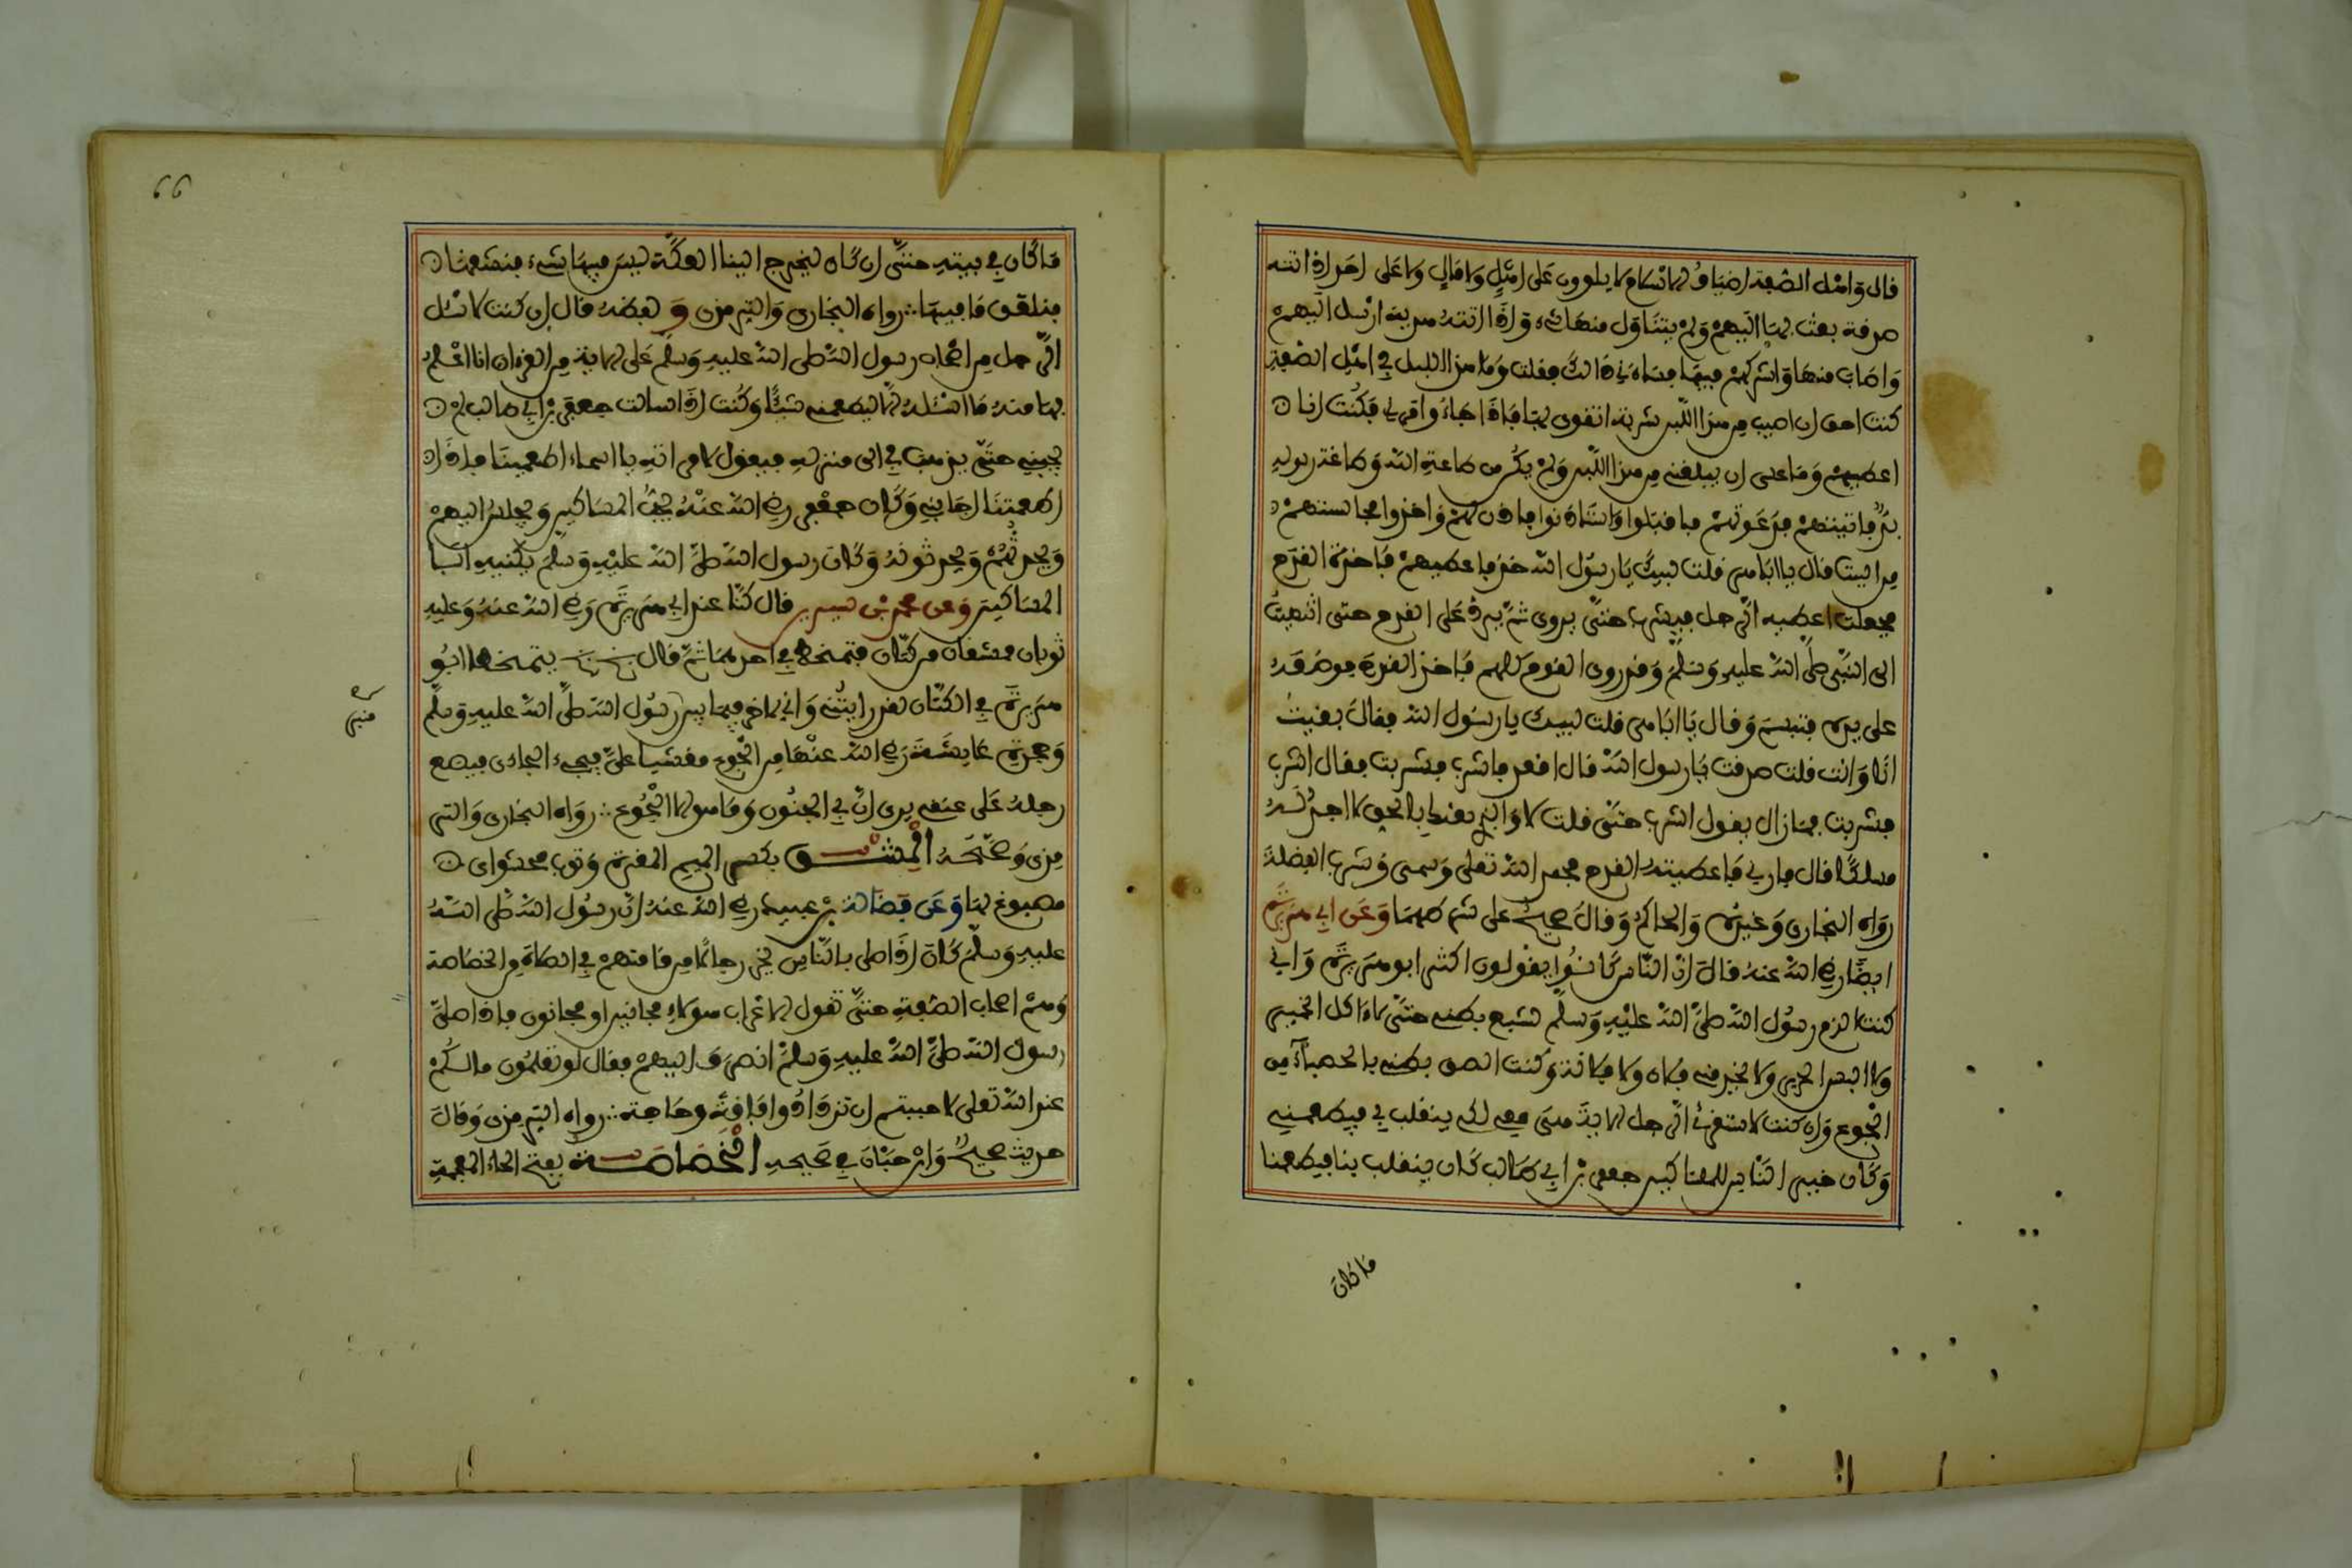 قال واهل الصفة اضياف الاسلام لا يلوون على اهل ولا مال ولا على احد اذا اتته
صدقة بعث بها اليهم ولم يتناول منها شيء واذا اتته هدية ارسل اليهم
واصاب منها واشركهم فيها فساءني ذالك فقلت وما هذا اللبن في اهل الصفة
كنت احق ان اصيب من هذا اللبن شربة اتقوى بها فاذا جاء وامرني فكنت انا
اعطيهم وما عسى ان يبلغني من هذا اللبن ولم يكن من طاعة الله وطاعة رسوله
بد فاتيتهم فدعوتهم فاقبلوا واستاذنوا فاذن لهم واخذوا مجالسهم
من البيت قال يا ابا هر قلت لبيك يا رسول الله خذ فاعطيهم فاخذت القدح
فجعلت اعطيه الرجل فيشرب حتى يروى ثم يرد على القدح حتى انتهيت
الى النبي صلى الله عليه وسلم وقد روى القوم كلهم فاخذ القدح فوضعه
على يده فتبسم وقال يا ابا هر قلت لبيك يا رسول الله فقال بقيت
انا وانت قلت صدقت يا رسول الله قال اقعد فاشرب فشربت فقال اشرب
فشربت فما زال يقول اشرب حتى قلت لا والذي بعثك بالحق لا اجد له
مسلكا قال فارني فاعطيته القدح فحمد الله تعلى وسمى وشرب الفضلة
رواه البخاري وغيره والحاكم وقال صحيح على شرطهما وعن ابي هريرة
ايضا رضي الله عنه قال ان الناس كانوا يقولون اكثر ابو هريرة واني
كنت الزم رسول الله صلى الله عليه وسلم لشبع بطني حتى لا ءاكل الخمير
ولا البس الحرير ولا يخدمني فلان ولا فلانة وكنت الصق بطني بالحصباء من
الجوع وان كنت لاستقرئ الرجل الاية هي معي لكي ينقلب بي فيطعمني
وكان خير الناس للمساكين جعفر بن ابي طالب كان ينقلب بنا فيطعمنا
ما كان
66
ما كان في بيته حتى ان كان ليخرج الينا العكة ليس فيها شيء فنشقها
فنلعق ما فيها رواه البخاري والترمذي ولفظه قال ان كنت لاسئل
الرجل من اصحاب رسول الله صلى الله عليه وسلم على الاية من القرءان انا اعلم
بها منه ما اسئله الا ليطعمني شيئا وكنت اذا سالت جعفر بن ابي طالب لم
يجبني حتى يذهب بي الى منزله فيقول لامراته يا اسماء اطعمينا فاذا
اطعمتنا اجابني وكان جعفر رضي الله عنه يحب المساكين ويجلس اليهم
ويحدثهم ويحدثونه وكان رسول الله صلى الله عليه وسلم يكنيه ابا
المساكين وعن محمد بن سيرين قال كنا عند ابي هريرة رضي الله عنه وعليه
ثوبان ممشقان من كتان فتمخط في احدهما ثم قال بخ بخ يتمخط ابو
هريرة في الكتان لقد رايتني واني لاخر فيما بين رسول الله صلى الله عليه وسلم
منبر
وحجرة عايشة رضي الله عنها من الجوع مغشيا علي فيجيء الجاءي فيضع
رجله على عنقي يرى ان بي الجنون وما هو الا الجوع رواه البخاري والتر
مذي وصححه المشق بكسر الميم المغرة وثوب ممشق اي
مصبوغ بها وعن فضالة بن عبيد رضي الله عنه ان رسول الله صلى الله
عليه وسلم كان اذا صلى بالناس يخر رجال من قامتهم في الصلاة من الخصاصة
وهم اصحاب الصفة حتى تقول الاعراب هؤلاء مجانين او مجانون فاذا صلى
رسول الله صلى الله عليه وسلم انصرف اليهم فقال لو تعلمون ما لكم
عند الله تعلى لاحببتم ان تزدادوا فاقة وحاجة رواه الترمذي وقال
حديث صحيح وابن حبان في صحيحه الخصاصة بفتح الخاء المعجمة